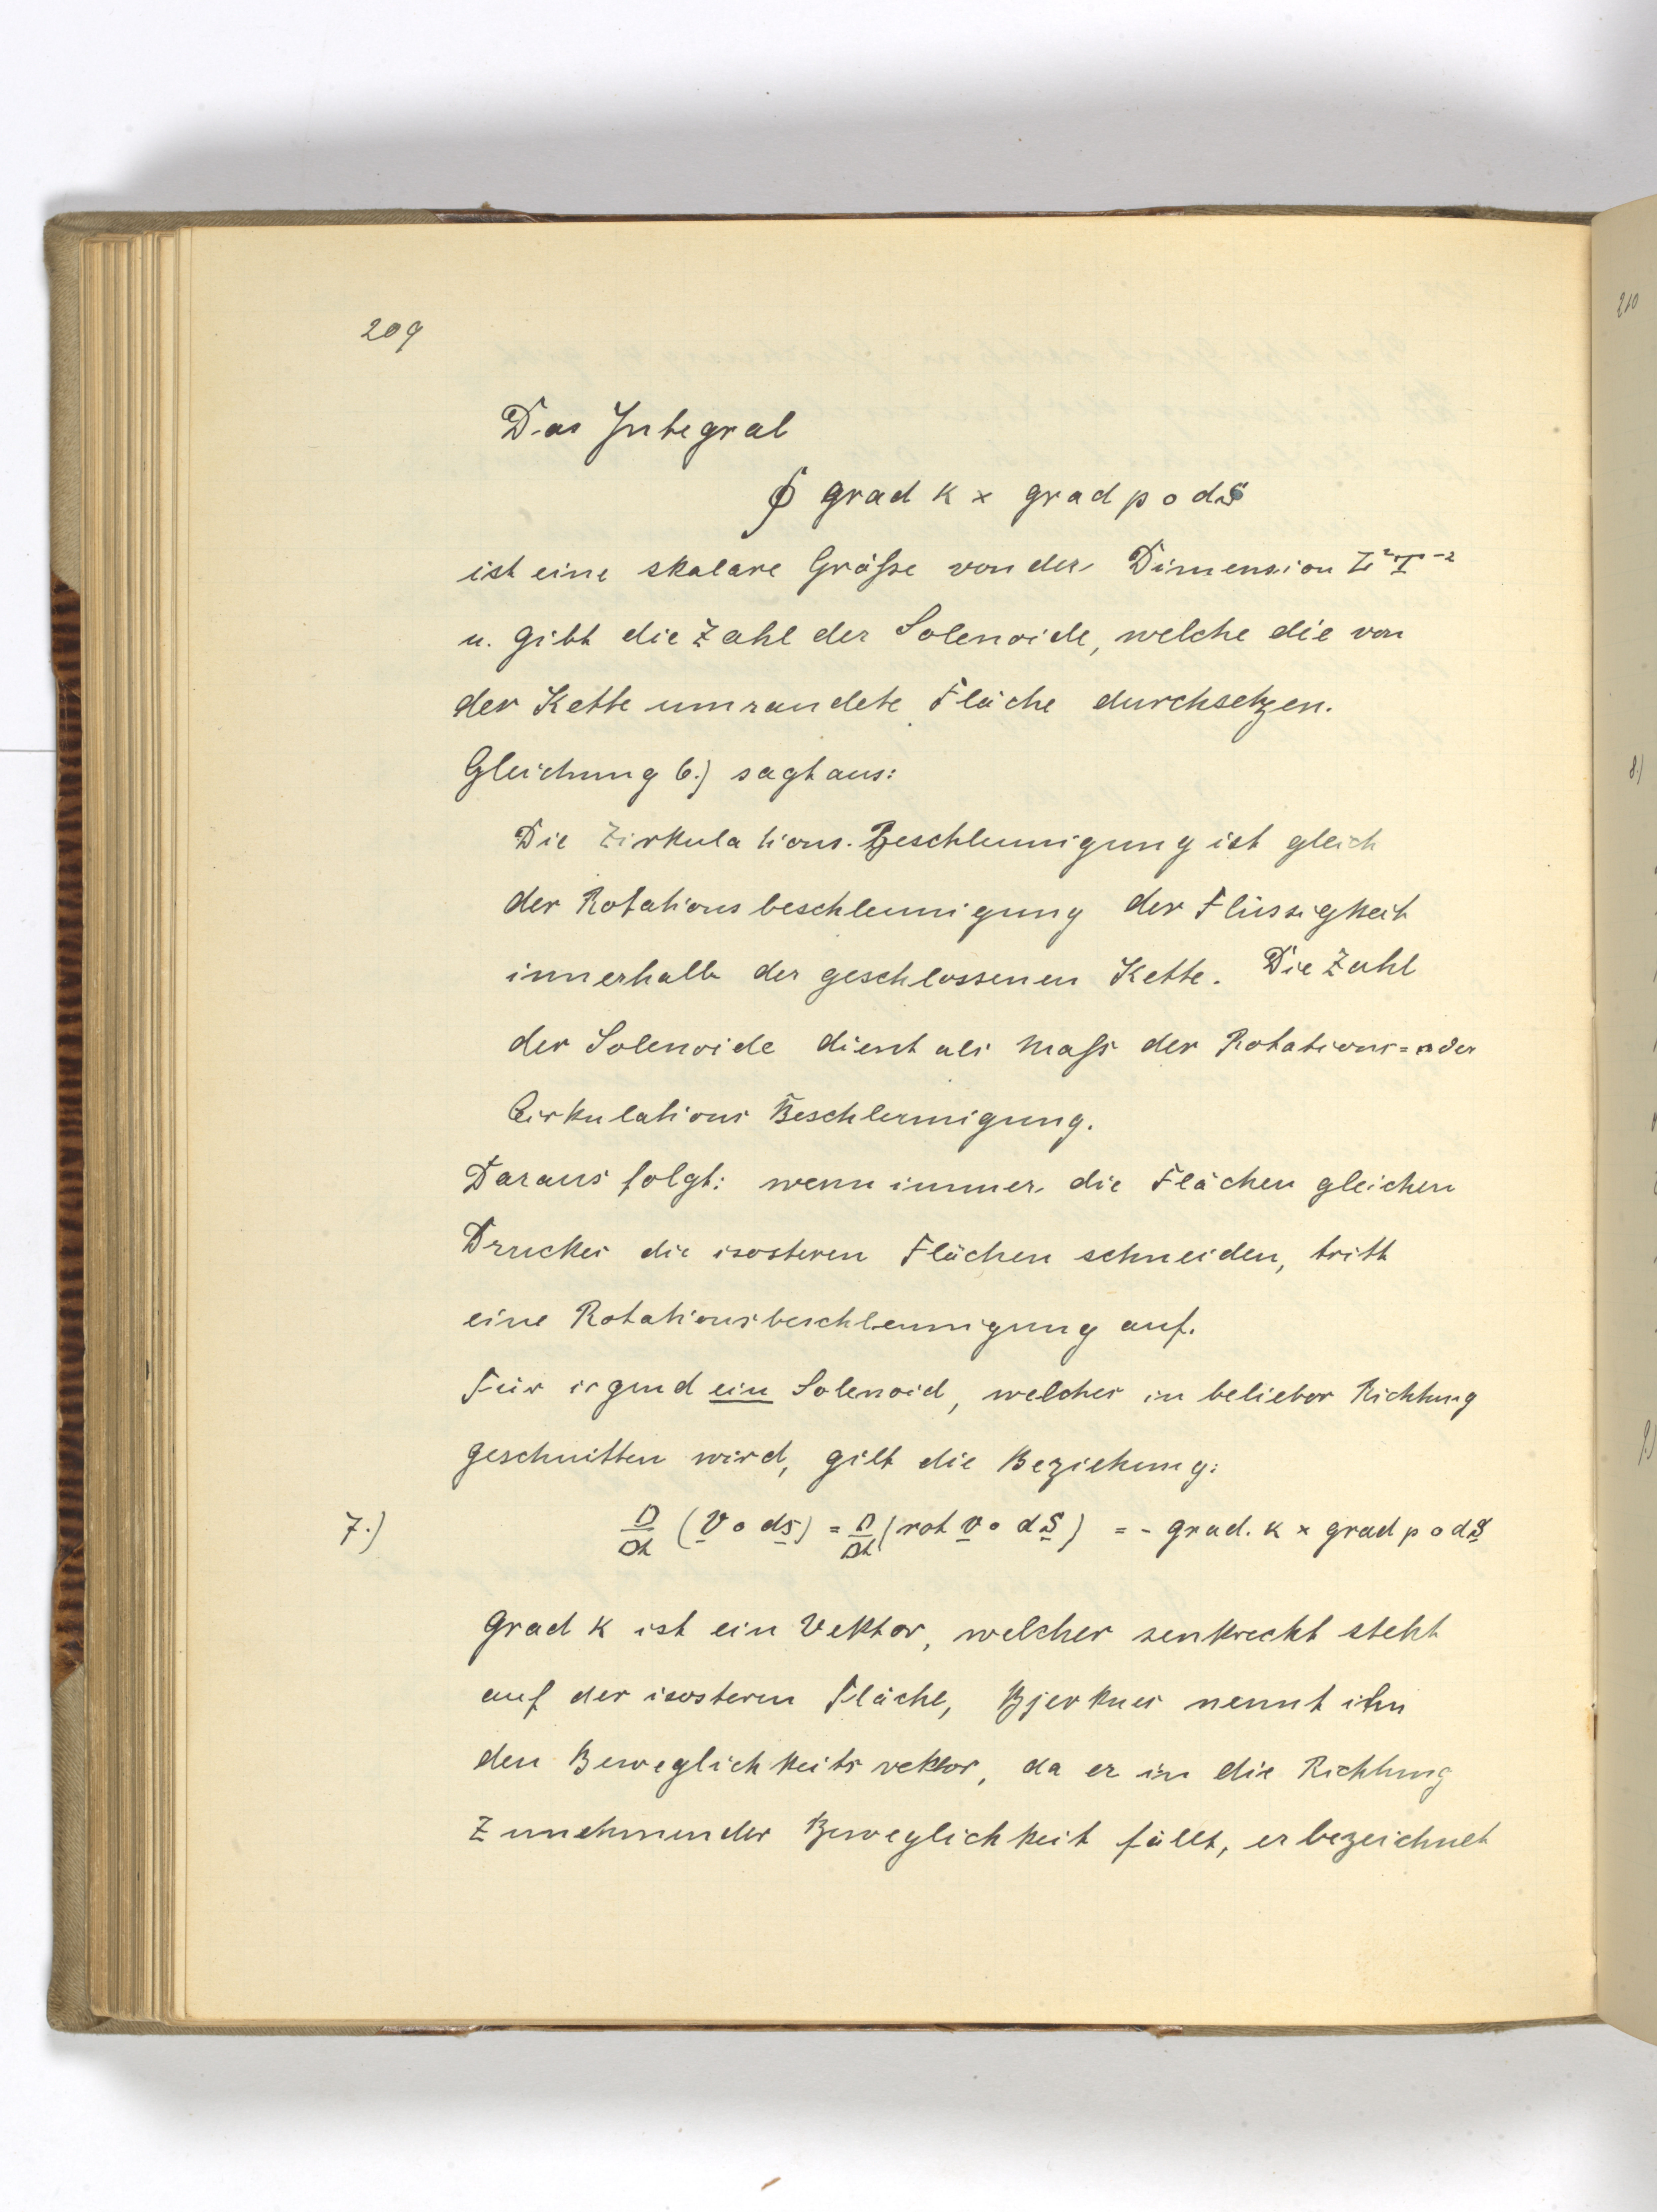 209
Das Integral
∮ grad k × grad p o dS
ist eine skalare Größe von der Dimension L²T⁻²
u. gibt die Zahl der Solenoide, welche die von
der Kette umrandete Fläche durchsetzen.
Gleichung 6.) sagt aus:
Die Zirkulations-Beschleunigung ist gleich
der Rotationsbeschleunigung der Flüssigkeit
innerhalb der geschlossenen Kette. Die Zahl
der Solenoide dient als Maß der Rotations= oder
Cirkulations Beschleunigung.
Daraus folgt: wenn immer die Flächen gleichen
Druckes die isosteren Flächen schneiden, tritt
eine Rotationsbeschleunigung auf.
Für irgend ein Solenoid, welches in beliebor Richtung
geschnitten wird, gilt die Beziehung:
7.) D/Dt (v o ds) = D/Dt (rot v o dS) = - grad. k × grad p o dS
Grad k ist ein Vektor, welcher senkrecht steht
auf der isosteren Fläche, Bjerknes nennt ihn
den Beweglichkeitsvektor, da er in die Richtung
zunehmender Beweglichkeit fällt, er bezeichnet
210
8)
9)